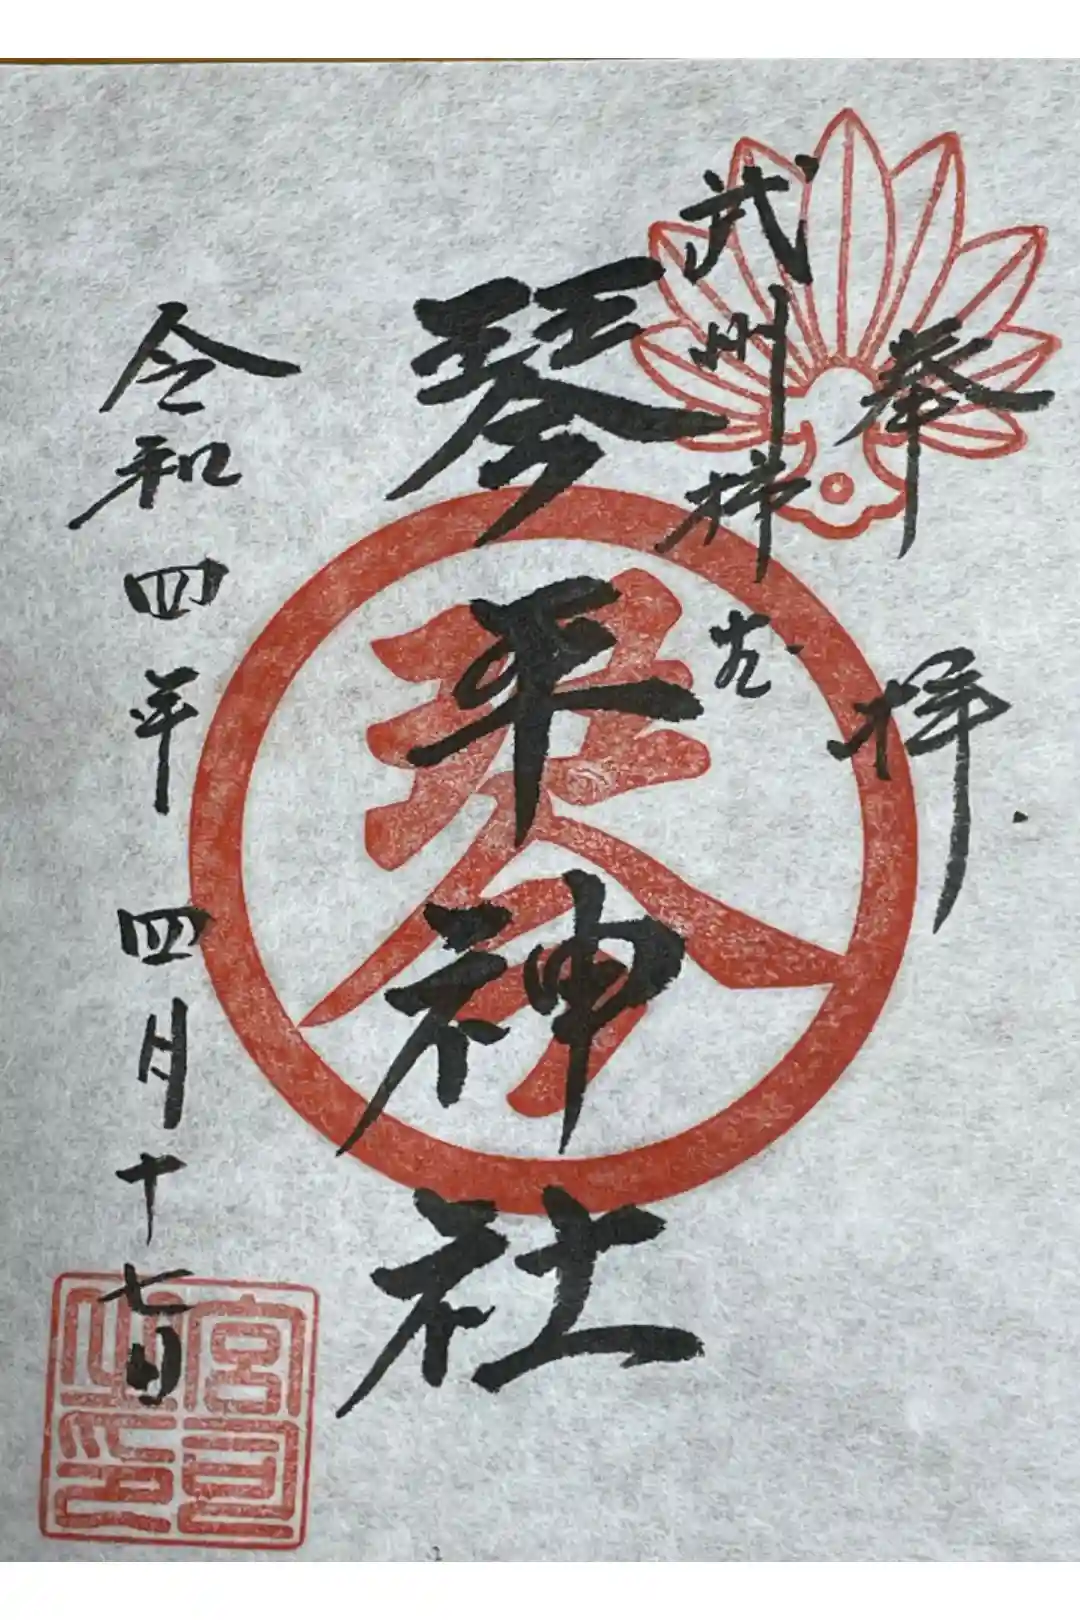 奉拝
武州柿生
琴平神社
令和四年四月十七日
琴
宮司之印